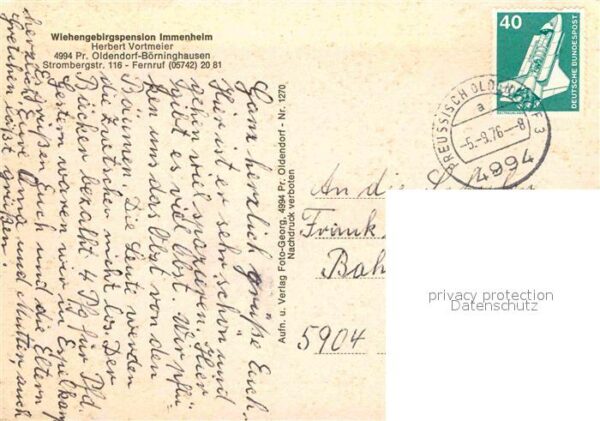 Wiehengebirgspension Immenheim
Herbert Vortmeier
4994 Pr. Oldendorf-Börninghausen
Strombergstr. 116 - Fernruf (05742) 20 81
Ganz herzlich grüße Euch.
Hier ist er sehr schön und
gehen viel spazieren. Hier
gibt es viel Obst. Wir pflü-
ken uns das Obst von den
Bäumen. Die Leute werden
die Zwetschen nicht los. Der
Bäcker bezahlt 4 Pfg für Pfd.
Gestern waren wir in Espelkamp
Es grüßen Euch und die Eltern
herzlich Eure Oma und Mutter, auch
Gretchen läßt grüßen.
Aufn. u. Verlag Foto-Georg, 4994 Pr. Oldendorf - Nr. 1270
Nachdruck verboten
40
DEUTSCHE BUNDESPOST
PREUSSISCH OLDENDORF 3
a
-5.-9.76-8
4994
An die
Frank
Bah
5904
privacy protection
Datenschutz